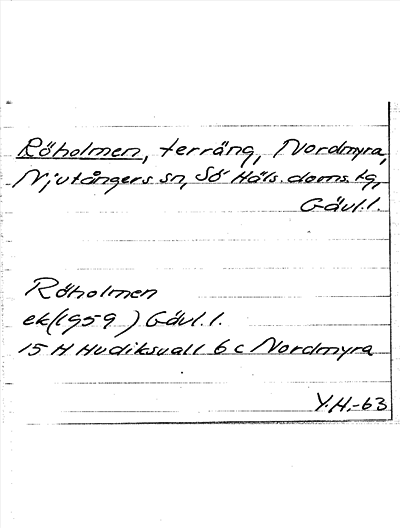 Röholmen, terräng, Nordmyra,
Njutångers sn, Sö Häls. doms. tg,
Gävl.l.
Röholmen
ek(1959) Gävl.l.
15 H Hudiksvall 6 c Nordmyra
Y.H.-63